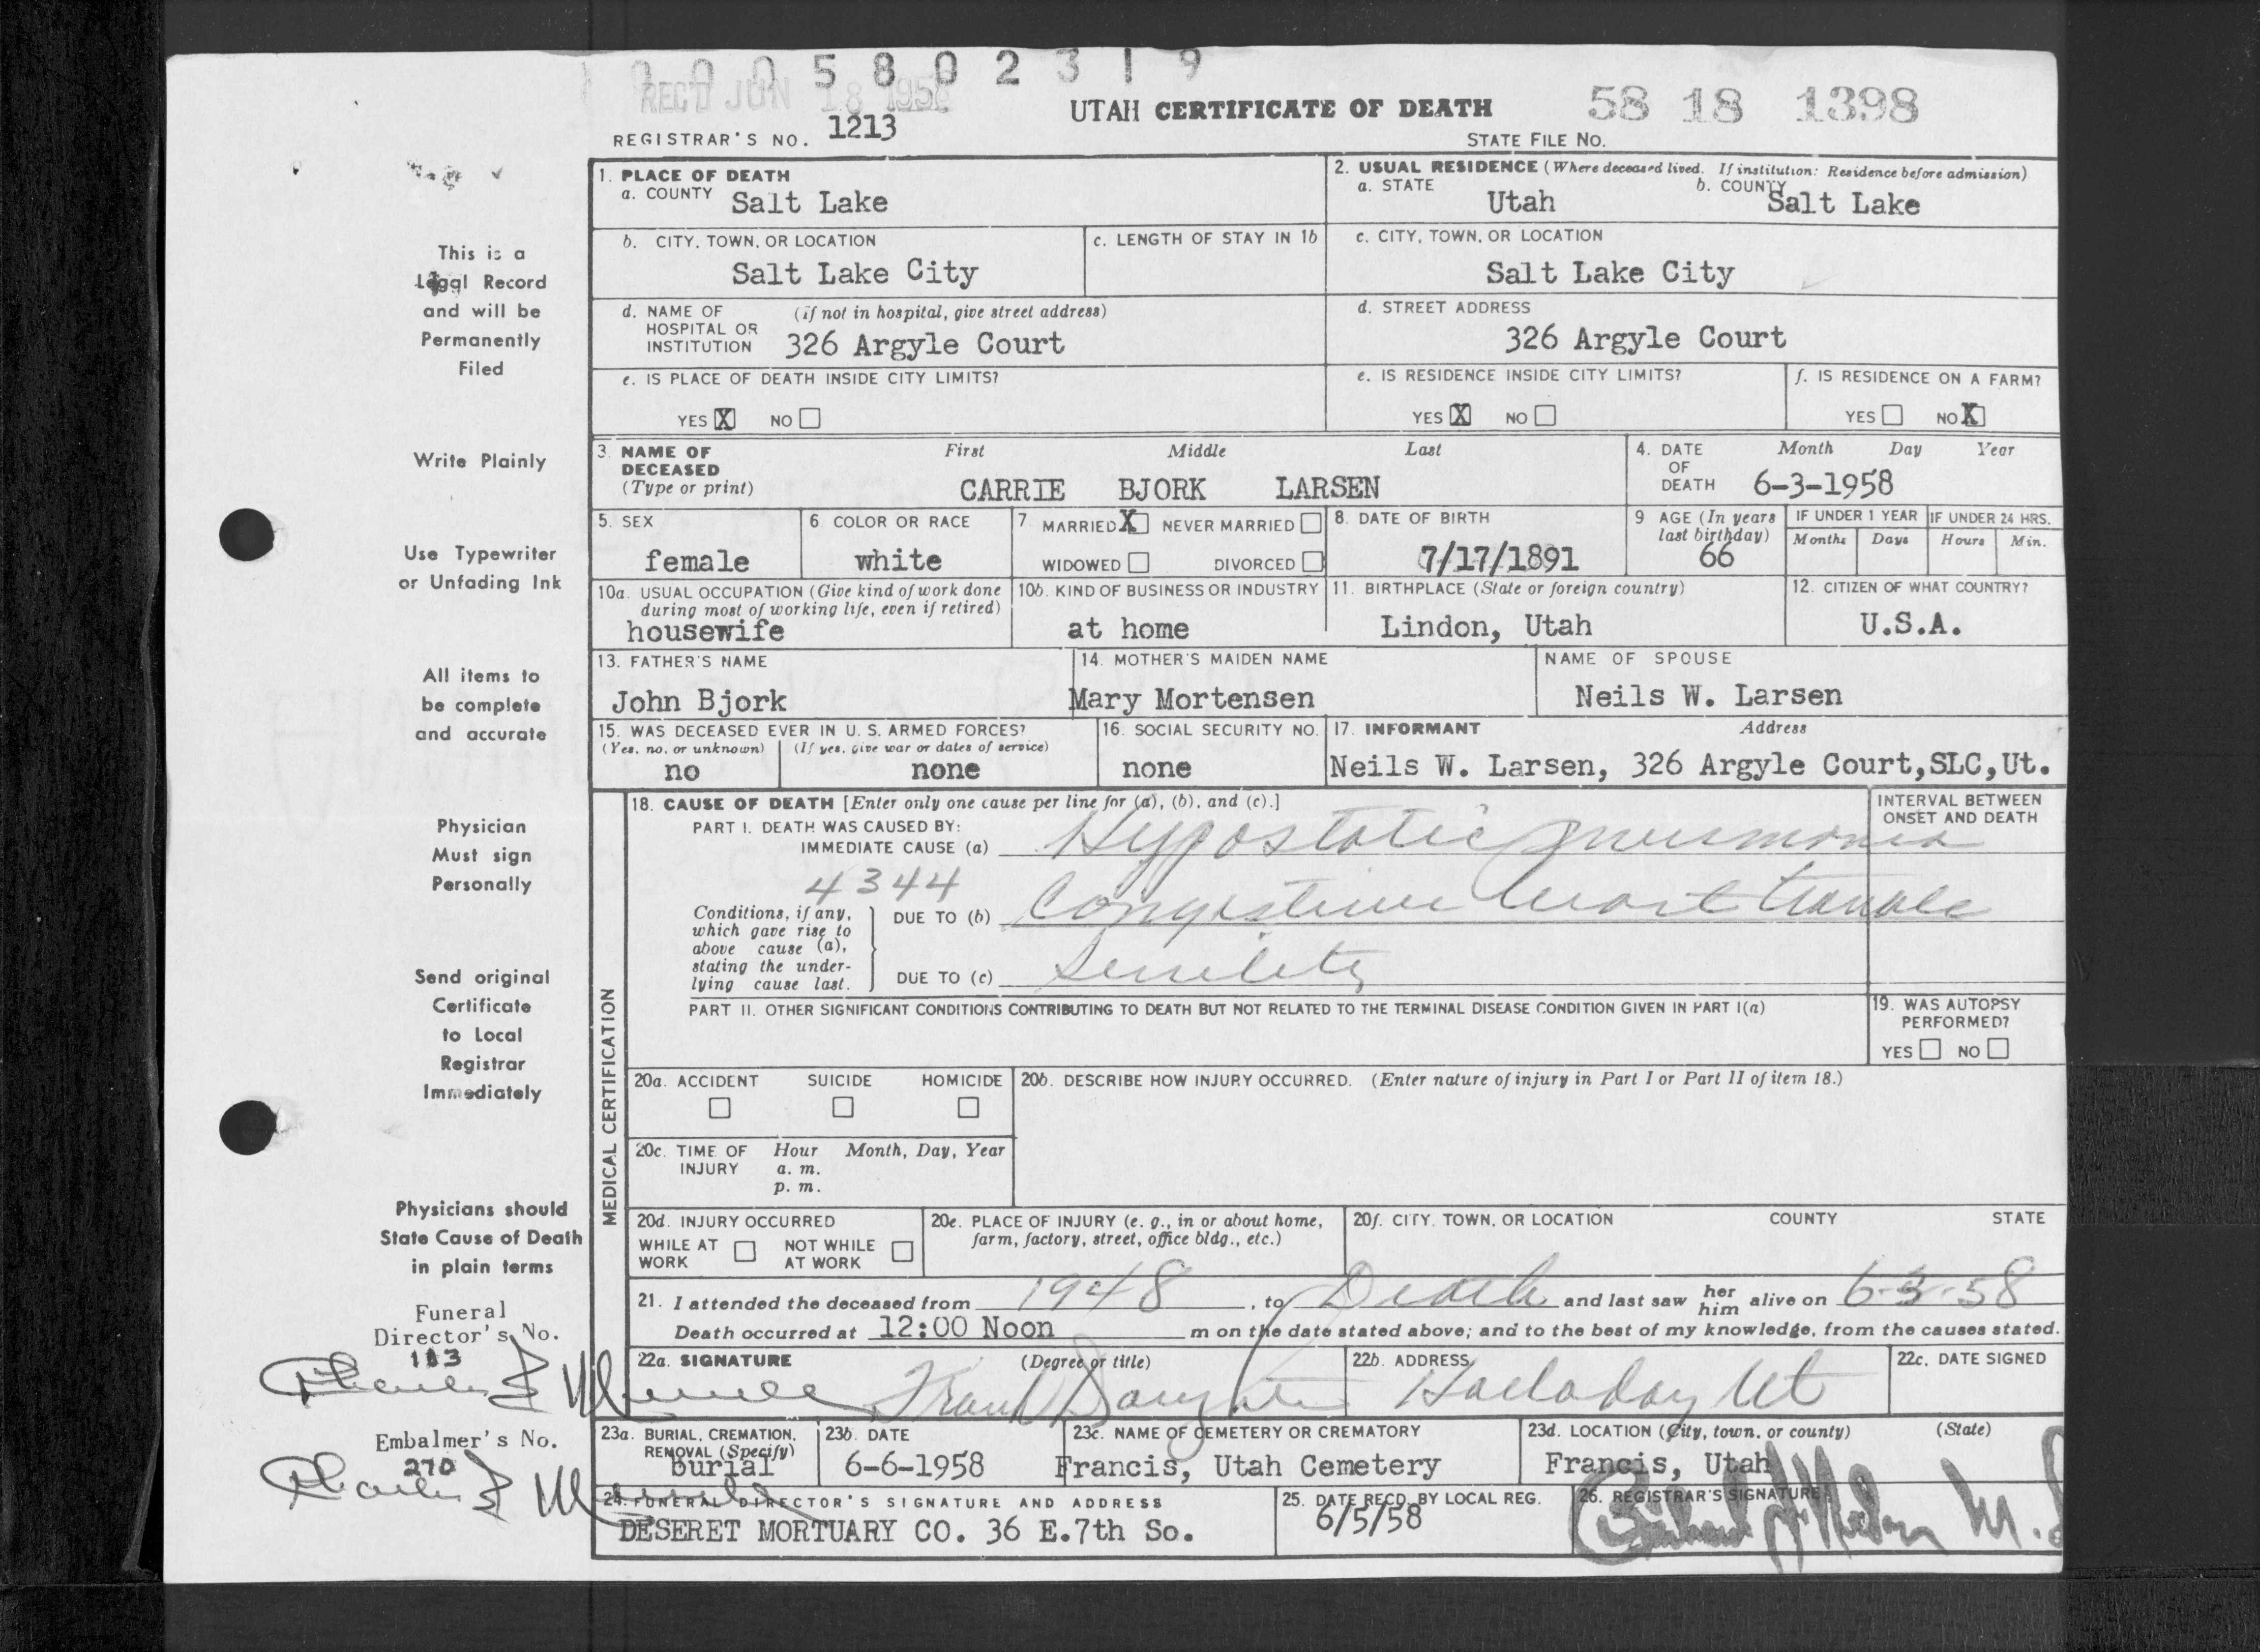 0005802319
REC'D JUN 18 1958
UTAH CERTIFICATE OF DEATH
58 18 1398
REGISTRAR'S NO. 1213
STATE FILE NO.
This is a
Legal Record
and will be
Permanently
Filed
Write Plainly
Use Typewriter
or Unfading Ink
All items to
be complete
and accurate
Physician
Must sign
Personally
Send original
Certificate
to Local
Registrar
Immediately
Physicians should
State Cause of Death
in plain terms
Funeral
Director's No.
113
Embalmer's No.
270
1. PLACE OF DEATH
a. COUNTY Salt Lake
2. USUAL RESIDENCE (Where deceased lived. If institution: Residence before admission)
a. STATE Utah b. COUNTY Salt Lake
b. CITY, TOWN, OR LOCATION
Salt Lake City
c. LENGTH OF STAY IN 1b
c. CITY, TOWN, OR LOCATION
Salt Lake City
d. NAME OF (if not in hospital, give street address)
HOSPITAL OR
INSTITUTION 326 Argyle Court
d. STREET ADDRESS
326 Argyle Court
e. IS PLACE OF DEATH INSIDE CITY LIMITS?
YES X NO
e. IS RESIDENCE INSIDE CITY LIMITS?
YES X NO
f. IS RESIDENCE ON A FARM?
YES NO X
3. NAME OF First Middle Last
DECEASED
(Type or print) CARRIE BJORK LARSEN
4. DATE Month Day Year
OF
DEATH 6-3-1958
5. SEX
female
6. COLOR OR RACE
white
7. MARRIED X NEVER MARRIED
WIDOWED DIVORCED
8. DATE OF BIRTH
7/17/1891
9 AGE (In years
last birthday)
66
IF UNDER 1 YEAR
Months Days
IF UNDER 24 HRS.
Hours Min.
10a. USUAL OCCUPATION (Give kind of work done
during most of working life, even if retired)
housewife
10b. KIND OF BUSINESS OR INDUSTRY
at home
11. BIRTHPLACE (State or foreign country)
Lindon, Utah
12. CITIZEN OF WHAT COUNTRY?
U.S.A.
13. FATHER'S NAME
John Bjork
14. MOTHER'S MAIDEN NAME
Mary Mortensen
NAME OF SPOUSE
Neils W. Larsen
15. WAS DECEASED EVER IN U. S. ARMED FORCES?
(Yes, no, or unknown) (If yes, give war or dates of service)
no none
16. SOCIAL SECURITY NO.
none
17. INFORMANT Address
Neils W. Larsen, 326 Argyle Court,SLC,Ut.
MEDICAL CERTIFICATION
18. CAUSE OF DEATH [Enter only one cause per line for (a), (b), and (c).]
INTERVAL BETWEEN
ONSET AND DEATH
PART I. DEATH WAS CAUSED BY:
IMMEDIATE CAUSE (a) Hypostatic pneumonia
4344
Conditions, if any,
which gave rise to
above cause (a),
stating the under-
lying cause last.
DUE TO (b) Congestive heart trouble
DUE TO (c) Senility
PART II. OTHER SIGNIFICANT CONDITIONS CONTRIBUTING TO DEATH BUT NOT RELATED TO THE TERMINAL DISEASE CONDITION GIVEN IN PART I(a)
19. WAS AUTOPSY
PERFORMED?
YES NO
20a. ACCIDENT SUICIDE HOMICIDE
20b. DESCRIBE HOW INJURY OCCURRED. (Enter nature of injury in Part I or Part II of item 18.)
20c. TIME OF Hour Month, Day, Year
INJURY a. m.
p. m.
20d. INJURY OCCURRED
WHILE AT NOT WHILE
WORK AT WORK
20e. PLACE OF INJURY (e. g., in or about home,
farm, factory, street, office bldg., etc.)
20f. CITY, TOWN, OR LOCATION COUNTY STATE
21. I attended the deceased from 1948, to Death and last saw her him alive on 6-3-58
Death occurred at 12:00 Noon m on the date stated above; and to the best of my knowledge, from the causes stated.
22a. SIGNATURE (Degree or title)
Frank
22b. ADDRESS
Holladay Ut
22c. DATE SIGNED
23a. BURIAL, CREMATION,
REMOVAL (Specify)
burial
23b. DATE
6-6-1958
23c. NAME OF CEMETERY OR CREMATORY
Francis, Utah Cemetery
23d. LOCATION (City, town, or county) (State)
Francis, Utah
24. FUNERAL DIRECTOR'S SIGNATURE AND ADDRESS
DESERET MORTUARY CO. 36 E.7th So.
25. DATE RECD. BY LOCAL REG.
6/5/58
26. REGISTRAR'S SIGNATURE